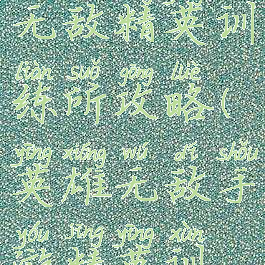 无敌精英训
liàn suǒ gōng lüè
练所攻略(
yīng xióng wú dí shǒu
英雄无敌手
yóu jīng yīng xùn
游精英训